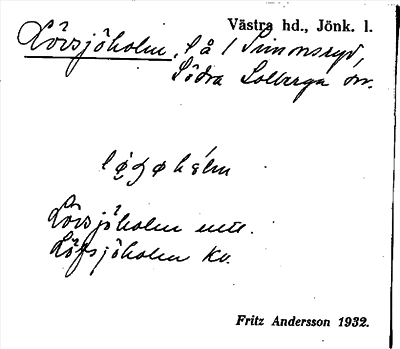 Västra hd., Jönk. l.
Lövsjöholm, l å / Simonsryd,
Södra Solberga sn.
Lövsjöholm utt.
Löfsjöholm Kv.
Fritz Andersson 1932.